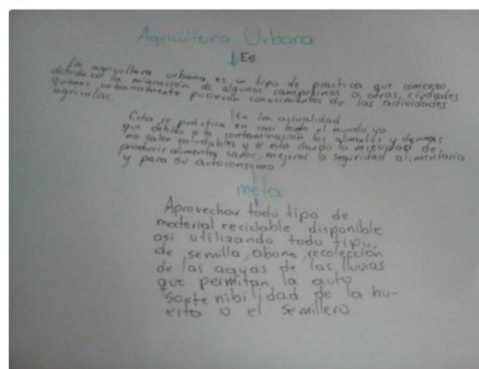 Agricultura Urbana
Es
La agricultura urbana es un tipo de practica que comento
debido a la migración de algunos campesinos a otras ciudades
quienes urbanamente pusieron conocimientos de las actividades
agricolas.
En la actualidad
Esta se práctica en casi todo el mundo ya
que debido a la contaminación los alimentos y demas
no salen saludables y se vio dando la necesidad de
producir alimentos sanos, mejorar la seguridad alimentaria
y para su autoconsumo
meta
Aprovechar todo tipo de
material reciclable disponible
asi utilizando todo tipo
de semilla, abono, recolección
de las aguas de las lluvias
que permitan la auto
sostenibilidad de la hu-
erta o el semillero